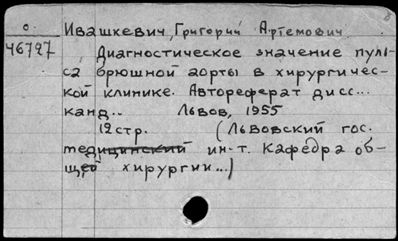 о.
Ивашкевич, Григорий Артемович
46727
Диагностическое значение пуль-
са брюшной аорты в хирургичес-
кой клинике. Автореферат дисс...
канд.. Львов, 1955
12стр. (Львовский гос.
медицинский ин-т. Кафедра об-
щей хирургии...)